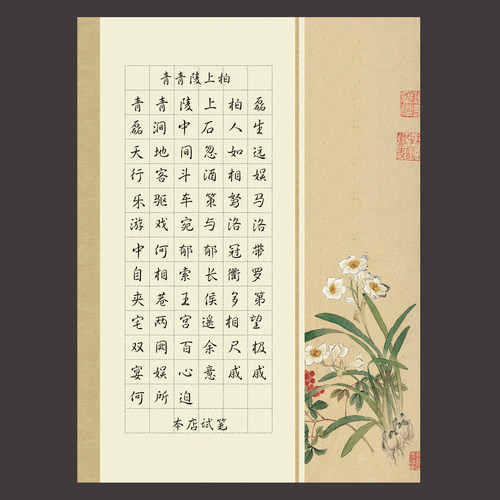 青青陵上柏
青青陵上柏磊
磊涧中石人生
天地间忽如远
行客斗酒相娱
乐驱车策驽马
游戏宛与洛洛
中何郁郁冠带
自相索长衢罗
夹巷王侯多第
宅两宫遥相望
双阙百余尺极
宴娱心意戚戚
何所迫
本店试笔